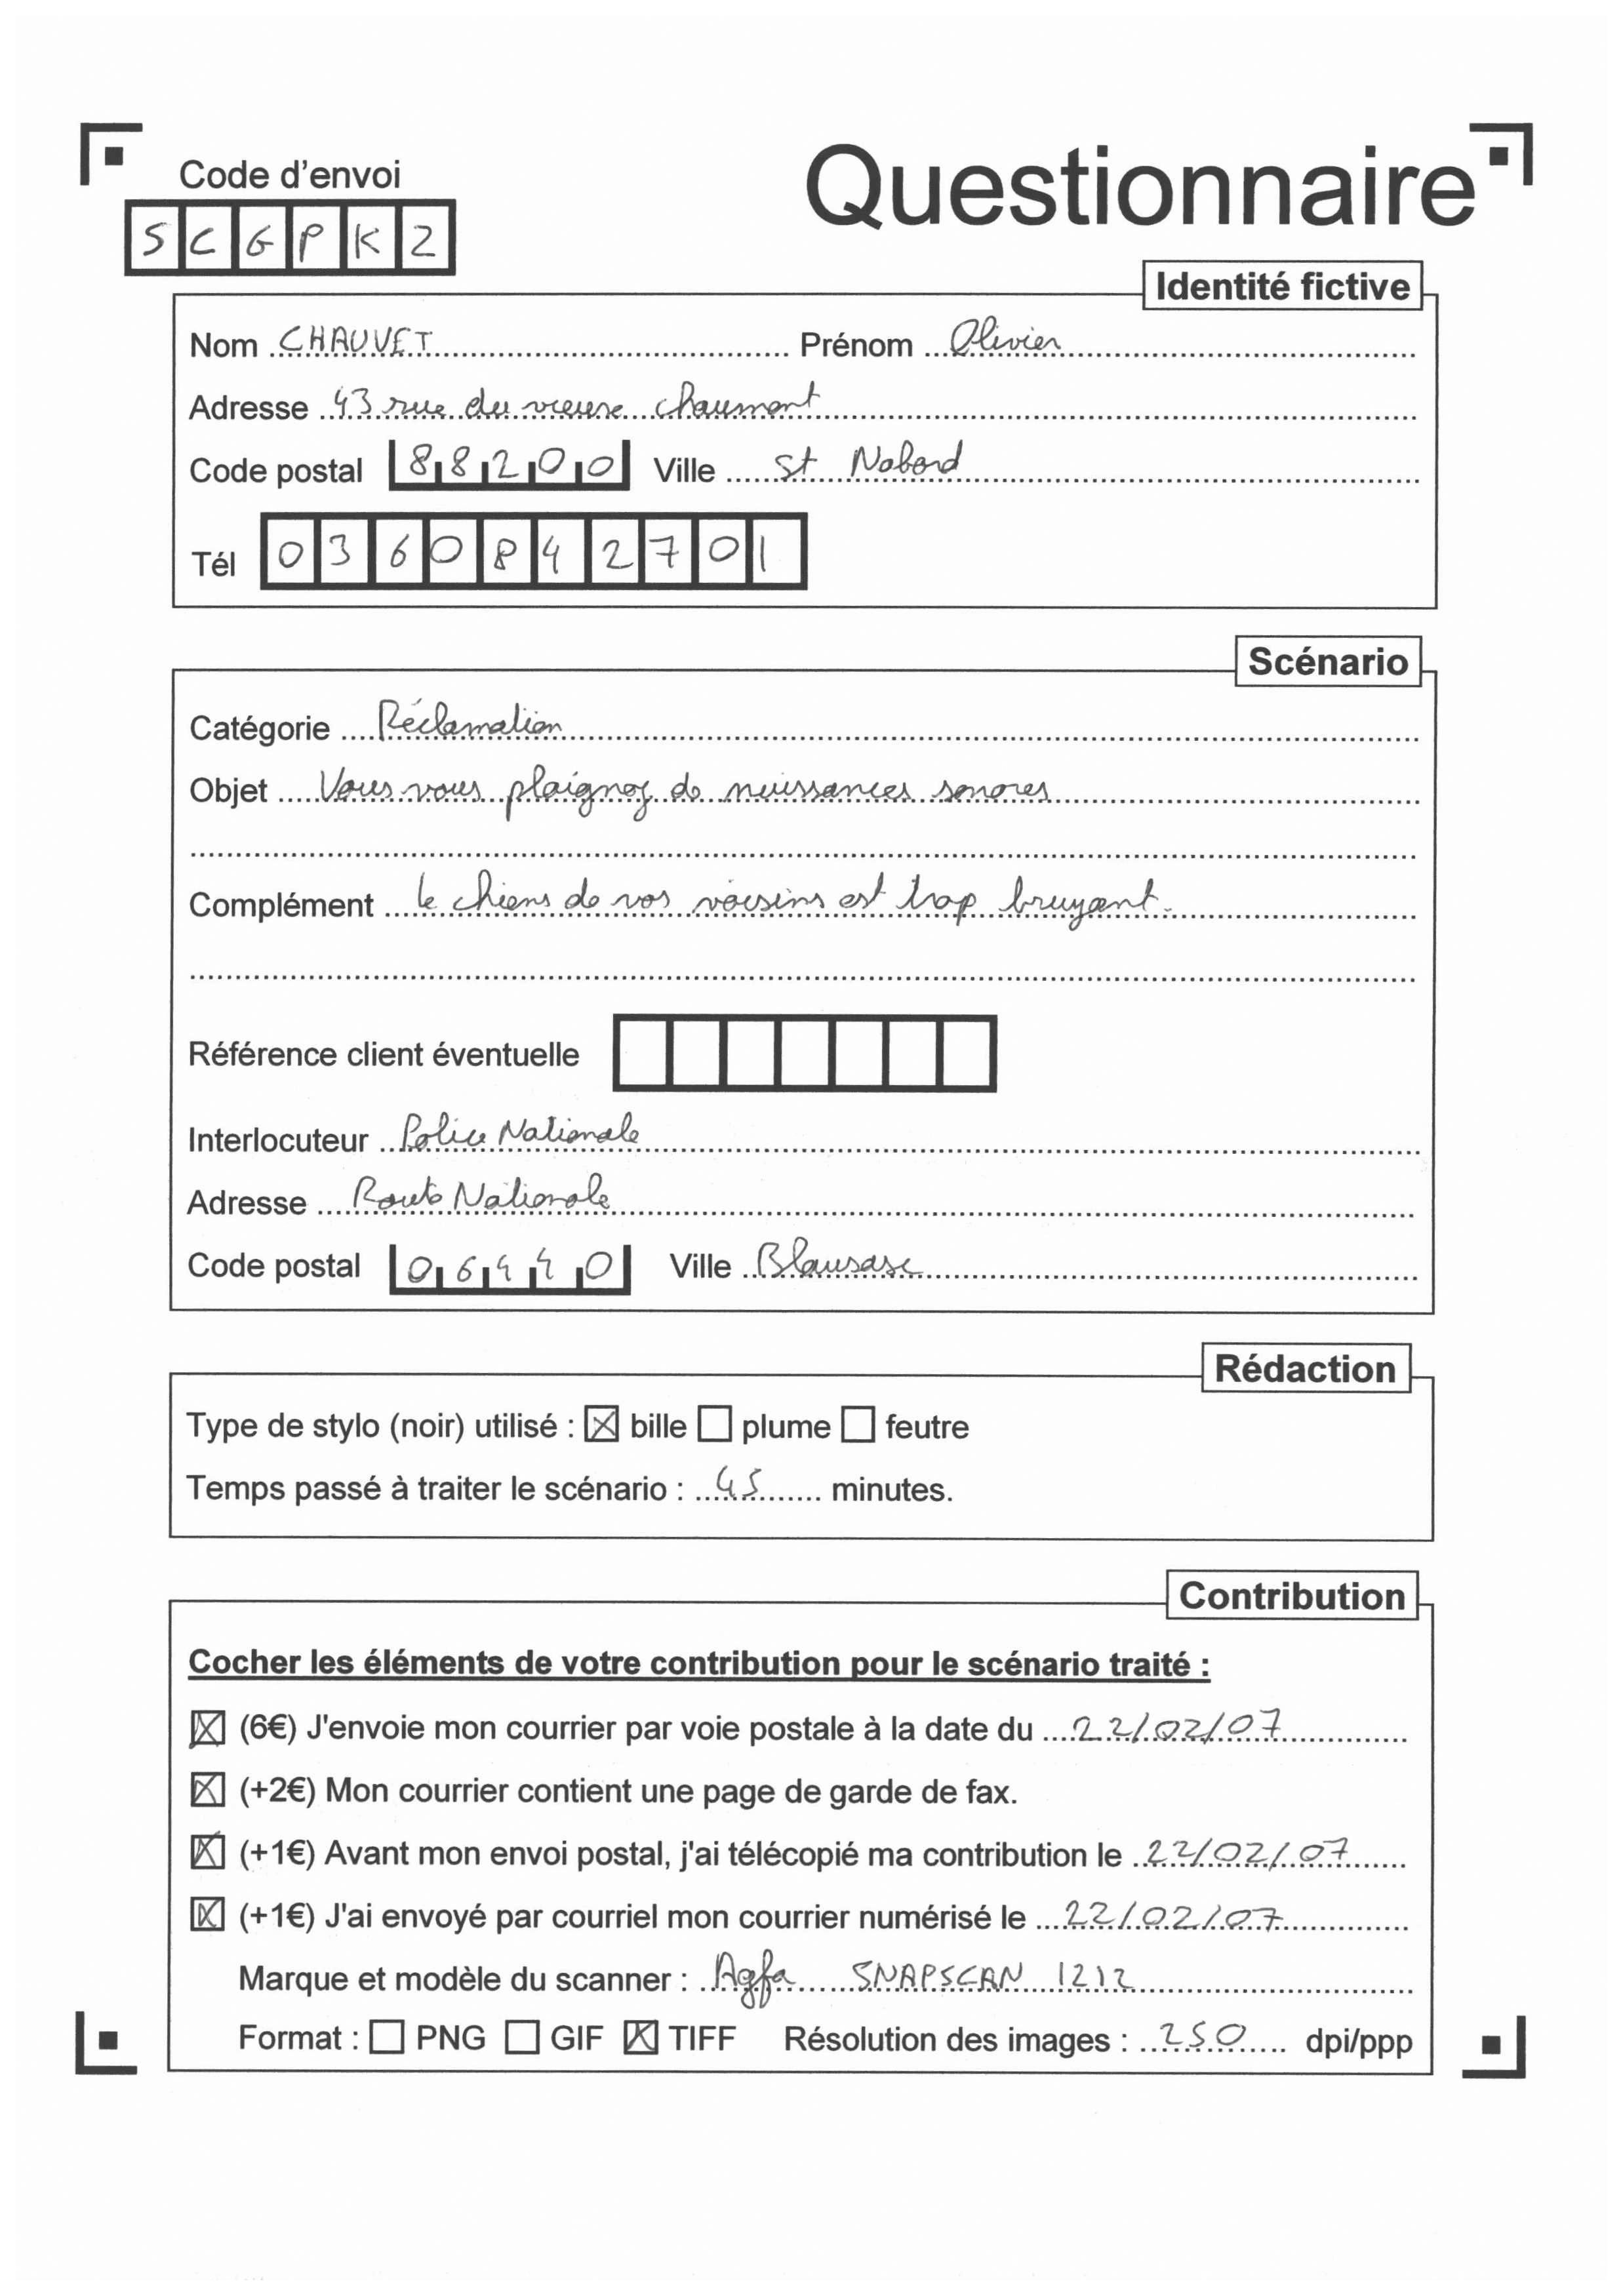 Code d'envoi
Questionnaire
SCGPK2
Identité fictive
Nom CHAUVET Prénom Olivier
Adresse 43 rue du vieux chaumont
Code postal 88200 Ville St Nabord
Tél 0360842701
Scénario
Catégorie Réclamation
Objet Vous vous plaignez de nuissances sonores
Complément le chiens de vos voisins est trop bruyant.
Référence client éventuelle
Interlocuteur Police Nationale
Adresse Route Nationale
Code postal 06440 Ville Blausasc
Rédaction
Type de stylo (noir) utilisé : ☒ bille ☐ plume ☐ feutre
Temps passé à traiter le scénario : 45 minutes.
Contribution
Cocher les éléments de votre contribution pour le scénario traité :
☒ (6€) J'envoie mon courrier par voie postale à la date du 22/02/07
☒ (+2€) Mon courrier contient une page de garde de fax.
☒ (+1€) Avant mon envoi postal, j'ai télécopié ma contribution le 22/02/07
☒ (+1€) J'ai envoyé par courriel mon courrier numérisé le 22/02/07
Marque et modèle du scanner : Agfa SNAPSCAN 1212
Format : ☐ PNG ☐ GIF ☒ TIFF Résolution des images : 250 dpi/ppp